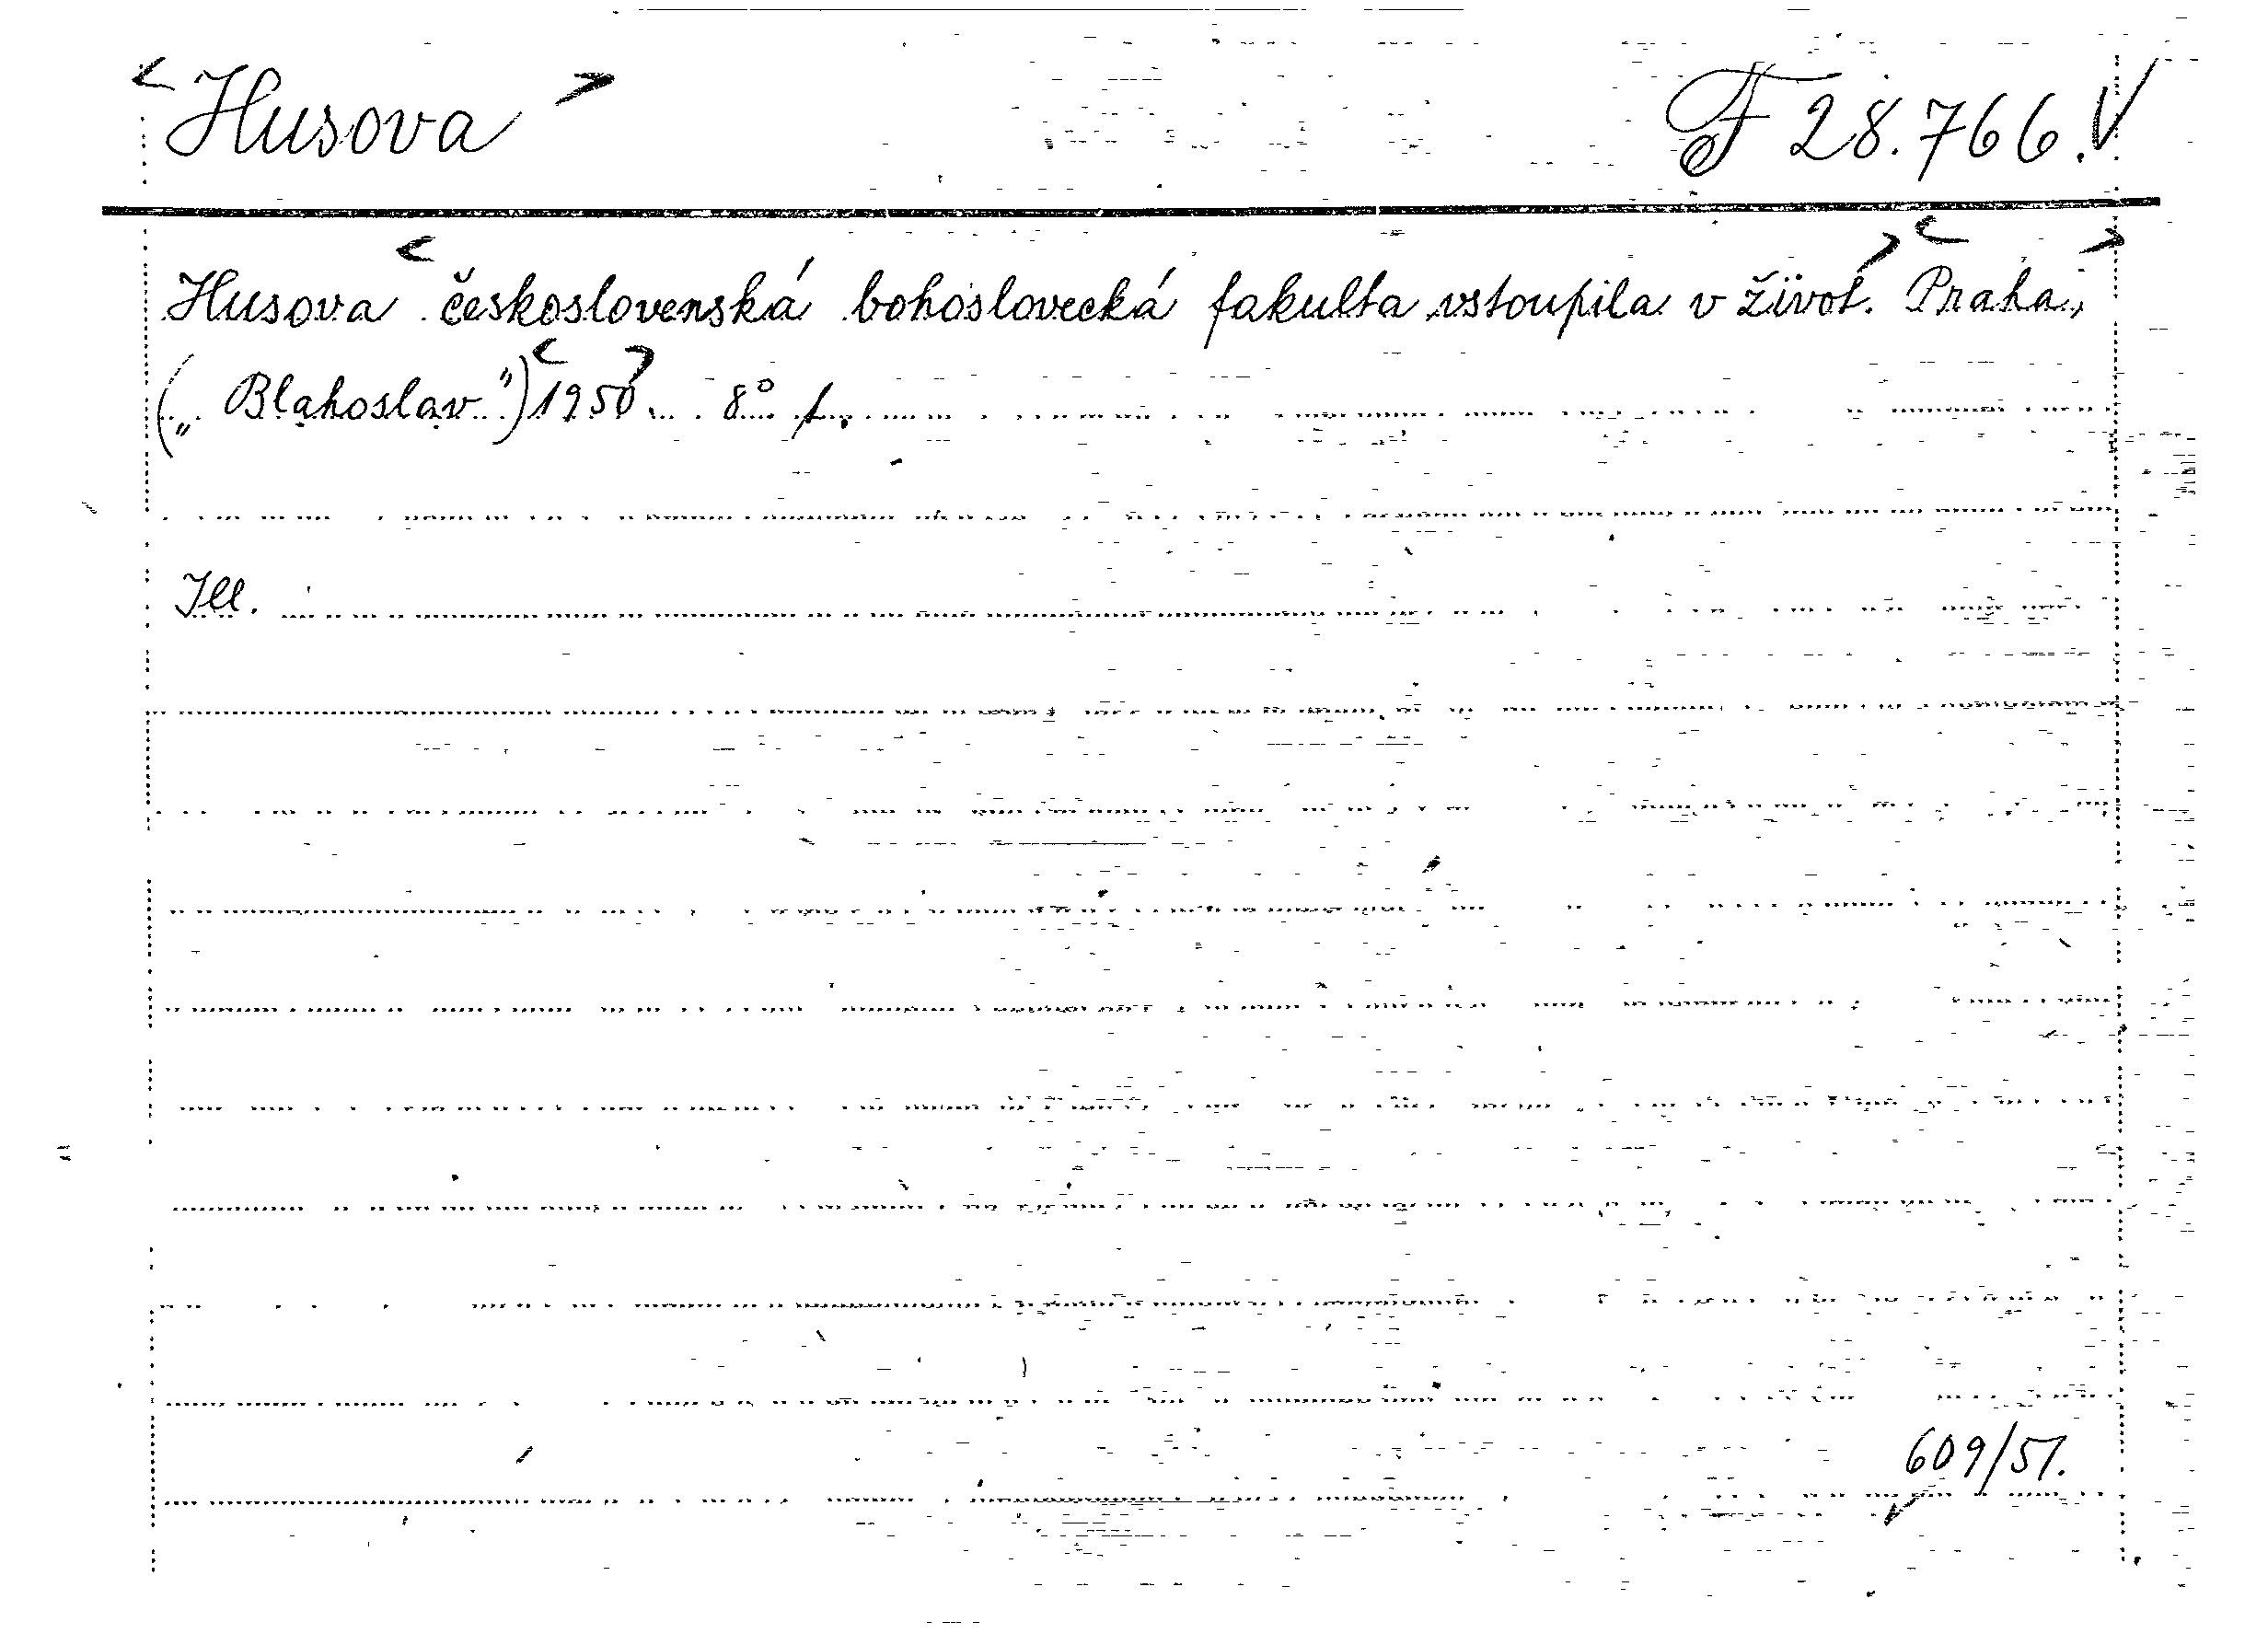 Husova F 28.766.
Husova československá bohoslovecká fakulta vstoupila v život. Praha,
(„Blahoslav") 1950. 8°
Ill.
609/51.